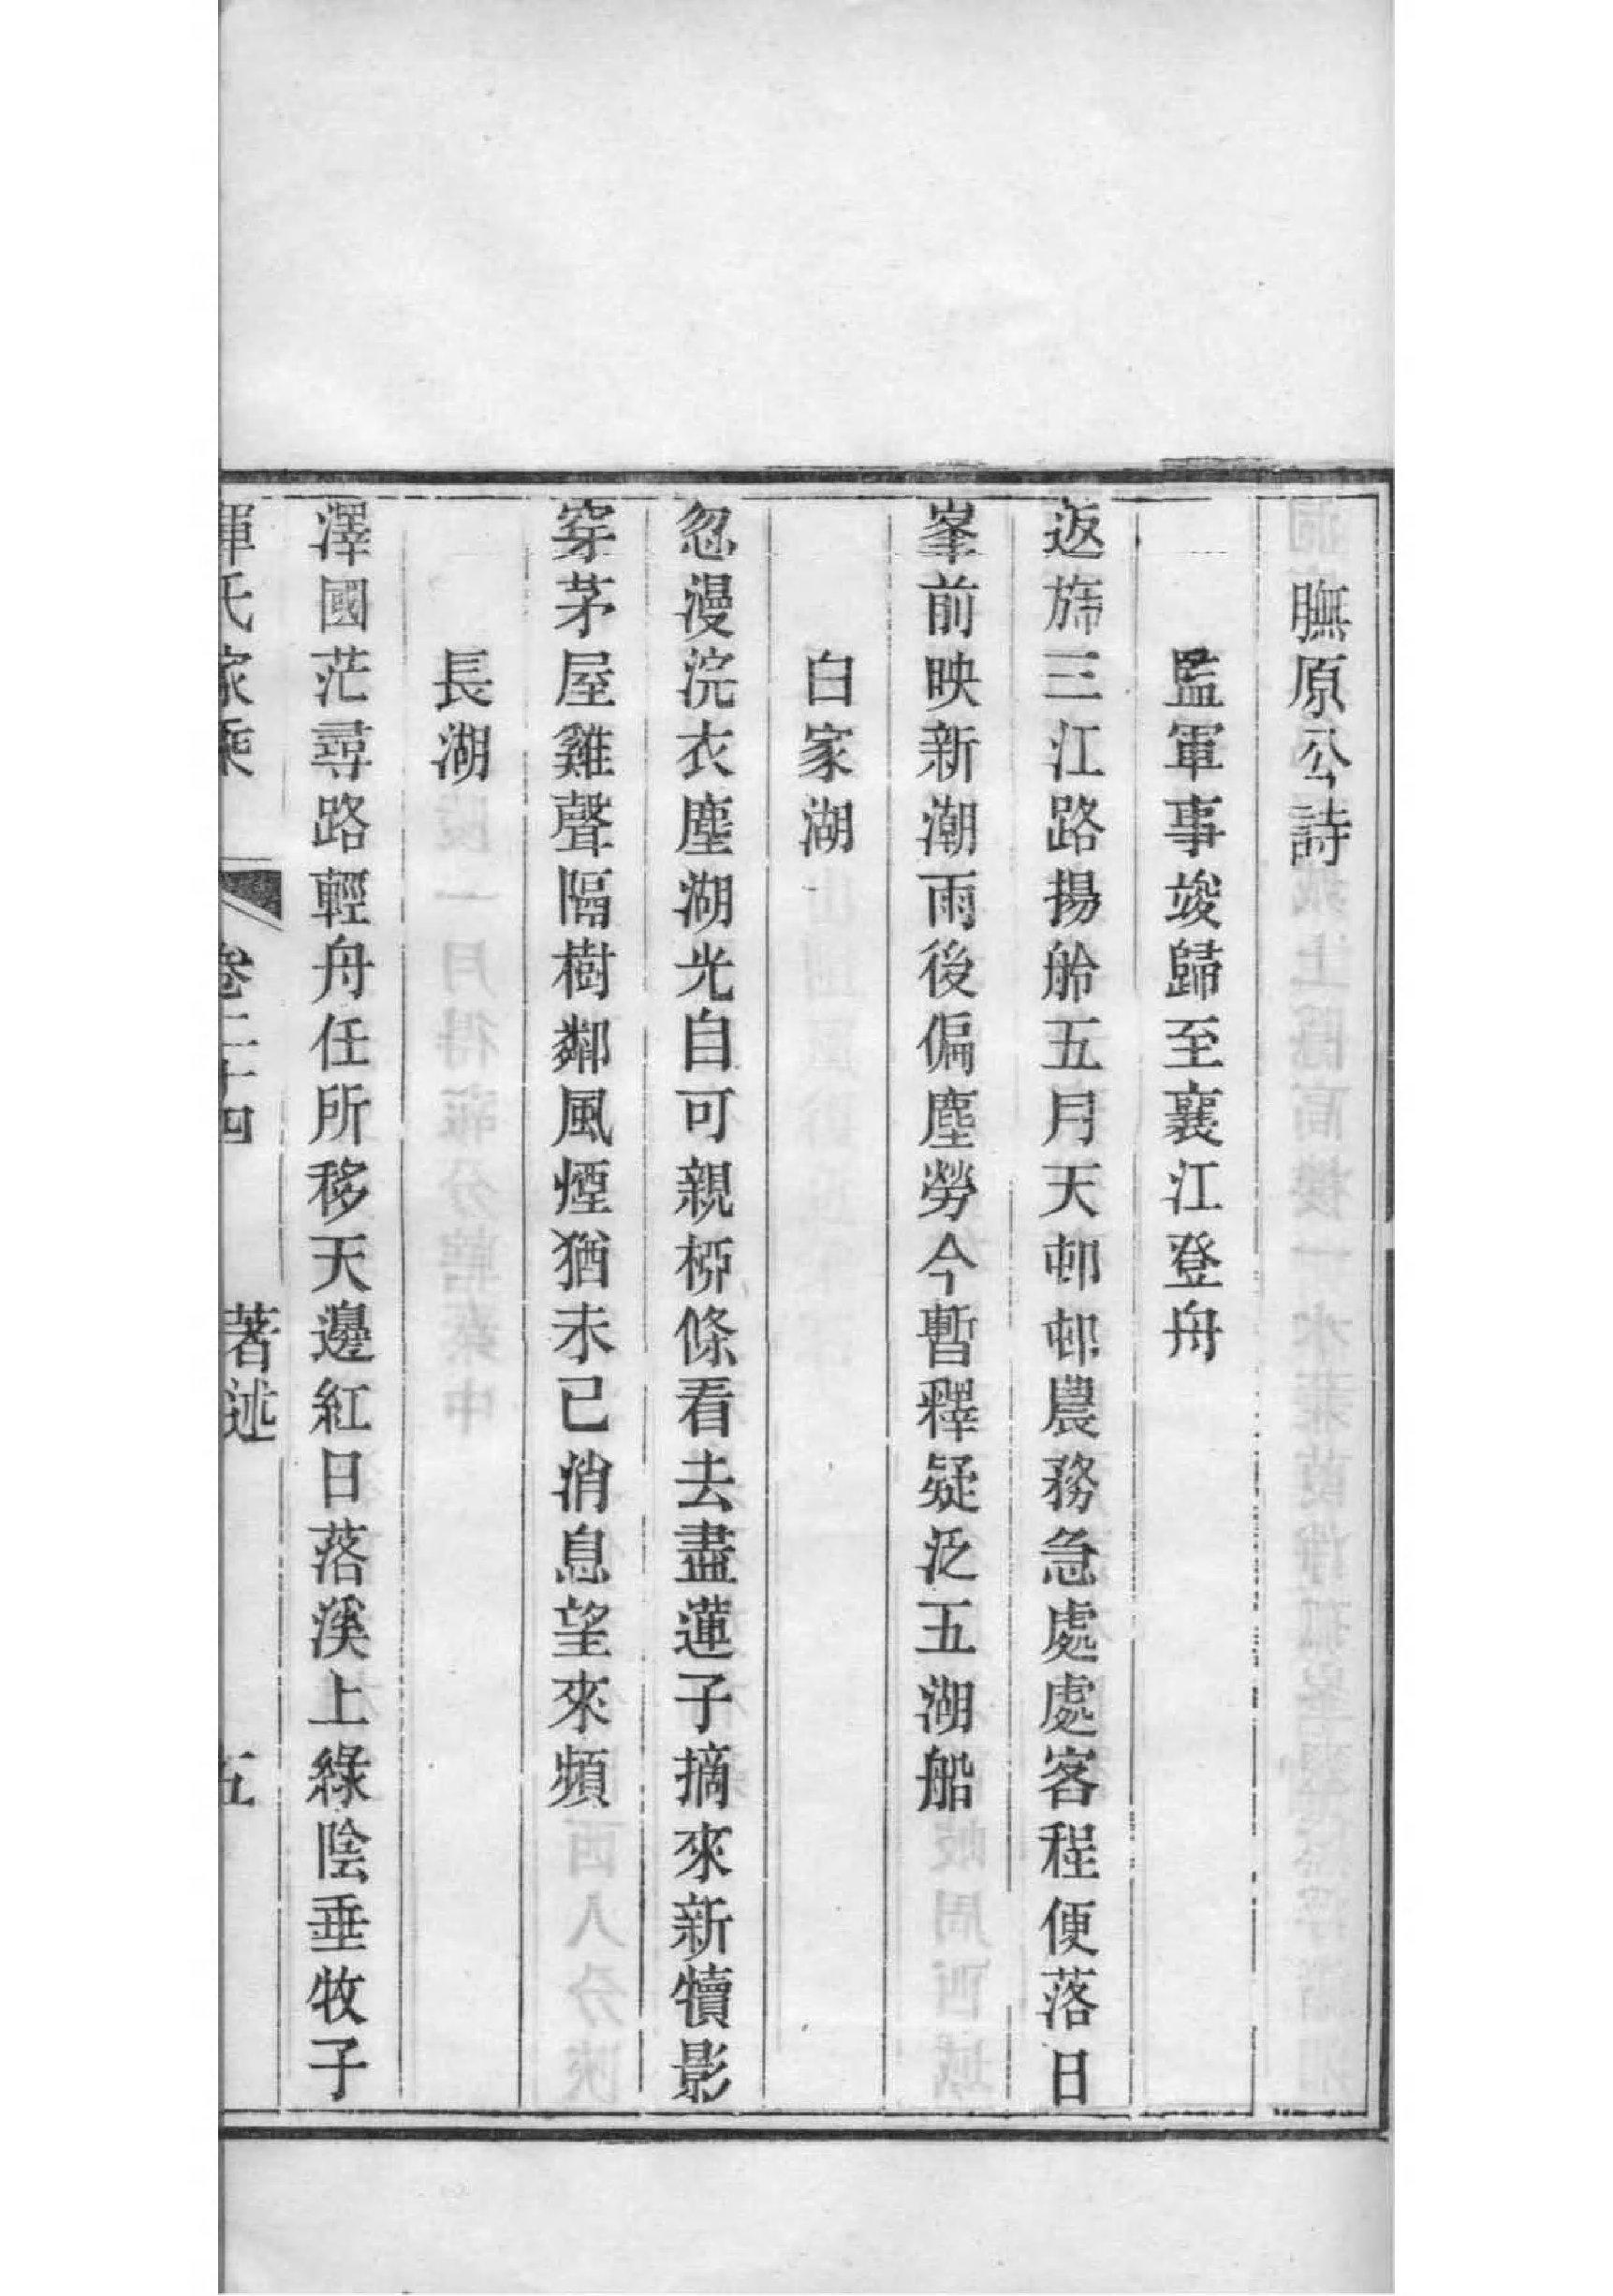 膴原公詩
監軍事竣歸至襄江登舟
返旆三江路揚舲五月天邨邨農務急處處客程便落日
峯前映新潮雨後偏塵勞今暫釋疑泛五湖船
白家湖
忽漫浣衣塵湖光自可親桺條看去盡蓮子摘來新犢影
穿茅屋雞聲隔樹鄰風煙猶未已消息望來頻
長湖
澤國茫尋路輕舟任所移天邊紅日落溪上綠陰垂牧子
惲氏家乘 卷二十四 著述 五